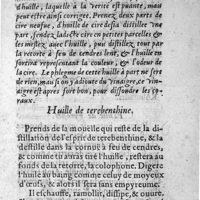 d'huille, laquelle à la verité est puante, mais
peut estre ainsi corrigee. Prenez deux parts de
cire neufue, d'huille de cire desia distillee vne
part, fendez ladicte cire en petites parcelles &
les meslez auec l'huille, puis distillez, tout par
la retorte à feu de cendres lent, & l'huille en
sortira representant la couleur, & l'odeur de
la cire. Le phlegme de ceste huille à part ne sert
de rien, mais si on y adiouste du vinaigre, ce vin-
aigre est apres fort bon, pour dissoudre les co-
raux.
Huille de terebenthine.
Prends de la mouelle qui reste de la di-
stillation de l'esprit de terebenthine, &
la distille dans la cornue à feu de cendres,
& comme tu auras tiré l'huille, restera au
fonds de la retorte, la colophone. Digere
l'huile au baing comme celuy de moyeux
d'œufs, & alors il sera sans empyreume.
Il eschauffe, ramollit, dissipe, & ouure.